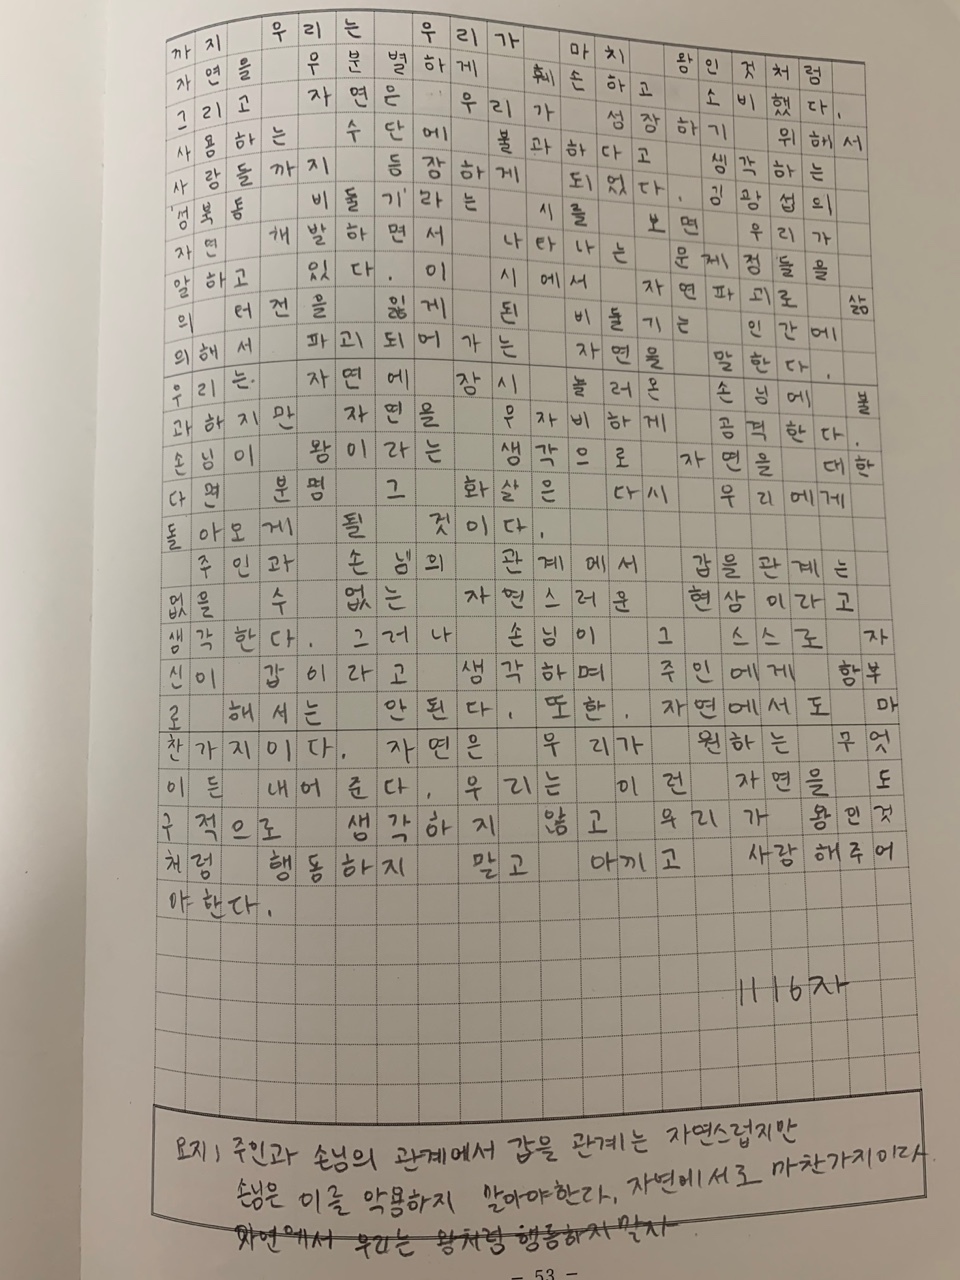 까지 우리는 우리가 마치 왕인것처럼
자연을 무분별하게 훼손하고 소비했다.
그리고 자연은 우리가 성장하기 위해서
사용하는 수단에 불과하다고 생각하는
사람들까지 등장하게 되었다. 김광섭의
'성북동 비둘기'라는 시를 보면 우리가
자연 개발하면서 나타나는 문제점들을
알하고 있다. 이 시에서 자연파괴로 삶
의 터전을 잃게 된 비둘기는 인간에
의해서 파괴되어가는 자연을 말한다.
우리는 자연에 잠시 놀러온 손님에 불
과하지만 자연을 무자비하게 공격한다.
손님이 왕이라는 생각으로 자연을 대한
다면 분명 그 화살은 다시 우리에게
돌아오게 될 것이다.
주인과 손님의 관계에서 갑을관계는
없을 수 없는 자연스러운 현상이라고
생각한다. 그러나 손님이 그 스스로 자
신이 갑이라고 생각하며 주인에게 함부
로 해서는 안된다. 또한, 자연에서도 마
찬가지이다. 자연은 우리가 원하는 무엇
이든 내어준다. 우리는 이런 자연을 도
구적으로 생각하지 않고 우리가 왕인것
처럼 행동하지 말고 아끼고 사랑해주어
야한다.
1116자
요지; 주인과 손님의 관계에서 갑을 관계는 자연스럽지만
손님은 이를 악용하지 말아야한다. 자연에서도 마찬가지이다
자연에서 우리는 왕처럼 행동하지말자
- 53 -